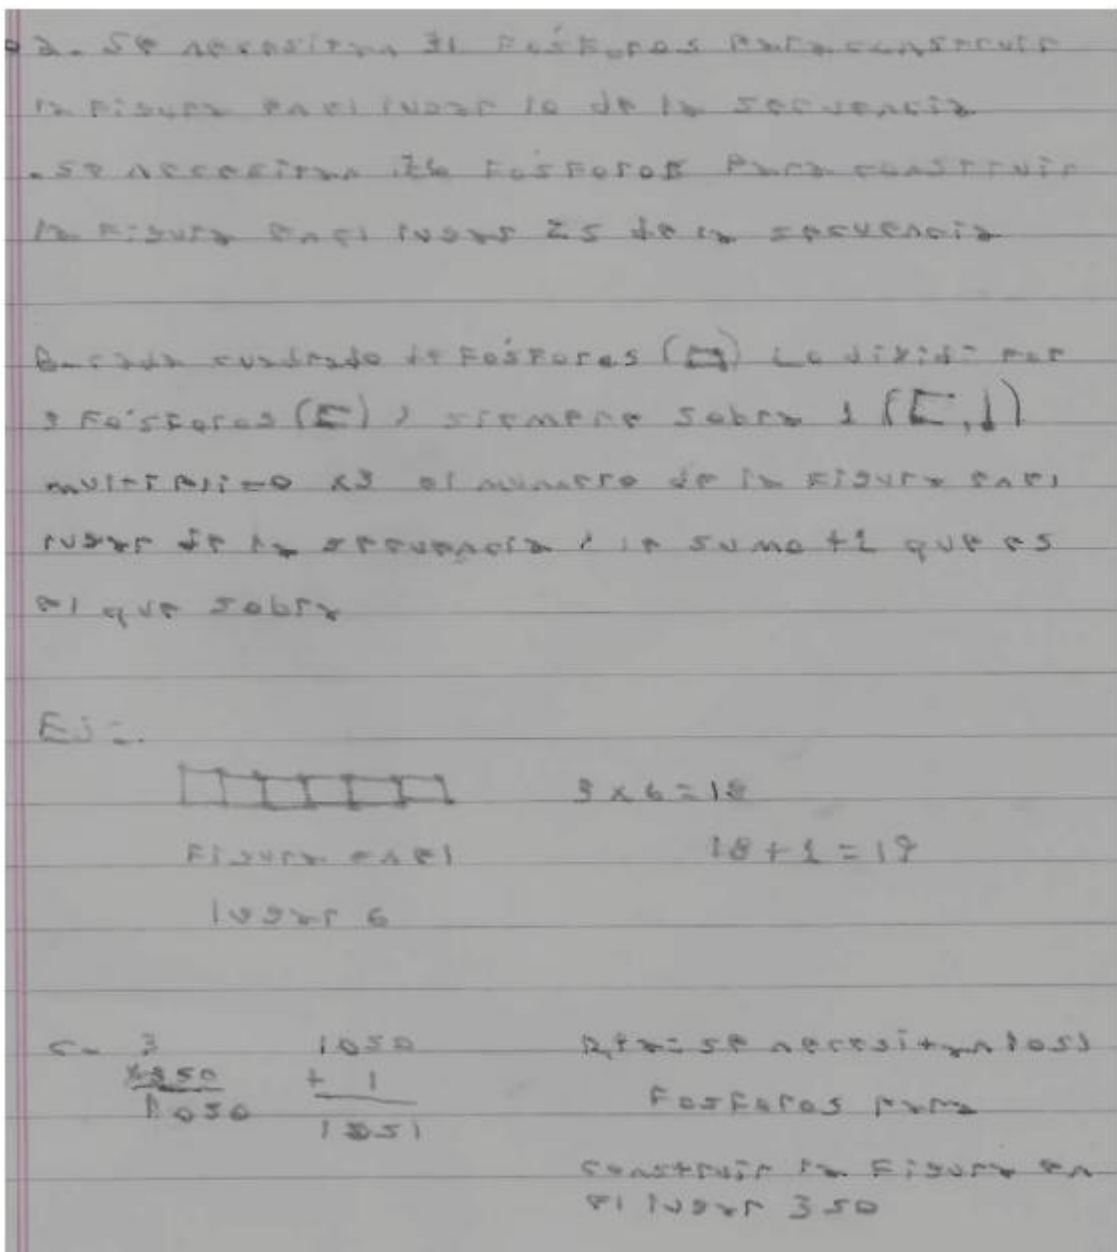 a. Se necesitan 31 Fósforos para construir
la Figura en el lugar 10 de la secuencia
. se necesitan 76 Fósforos para construir
la Figura en el lugar 25 de la secuencia
B- cada cuadrado de Fósforos (□) Lo dividí por
3 Fósforos (E) y siempre sobra 1 (E, |)
multiplico x3 el número de la Figura en el
lugar de la secuencia y le sumo +1 que es
el que sobra
Ej:
3 x 6 = 18
Figura en el
18 + 1 = 19
lugar 6
c- 3 1050 Rpta: se necesitan 1051
x350 + 1 Fosforos para
1050 1051
construir la Figura en
el lugar 350